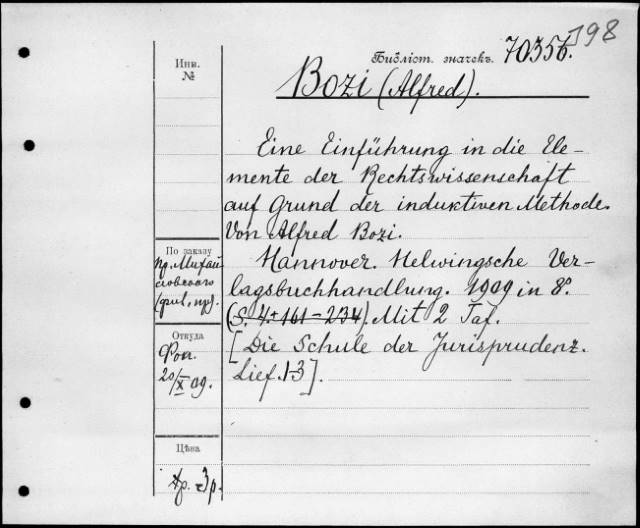 198
Библіот. значекъ. 70356.
Bozi (Alfred).
Eine Einführung in die Ele-
mente der Rechtswissenschaft
auf Grund der induktiven Methode.
Von Alfred Bozi.
Hannover. Helwingsche Ver-
lagsbuchhandlung. 1909 in 8°.
(S. 4+161-234) Mit 2 Taf.
[Die Schule der Jurisprudenz.
Lief. 1-3].
Инв.
№
По заказу
пр. Михай
ловскаго
Откуда
Роп.
20/X 09.
Цѣна
3 р.